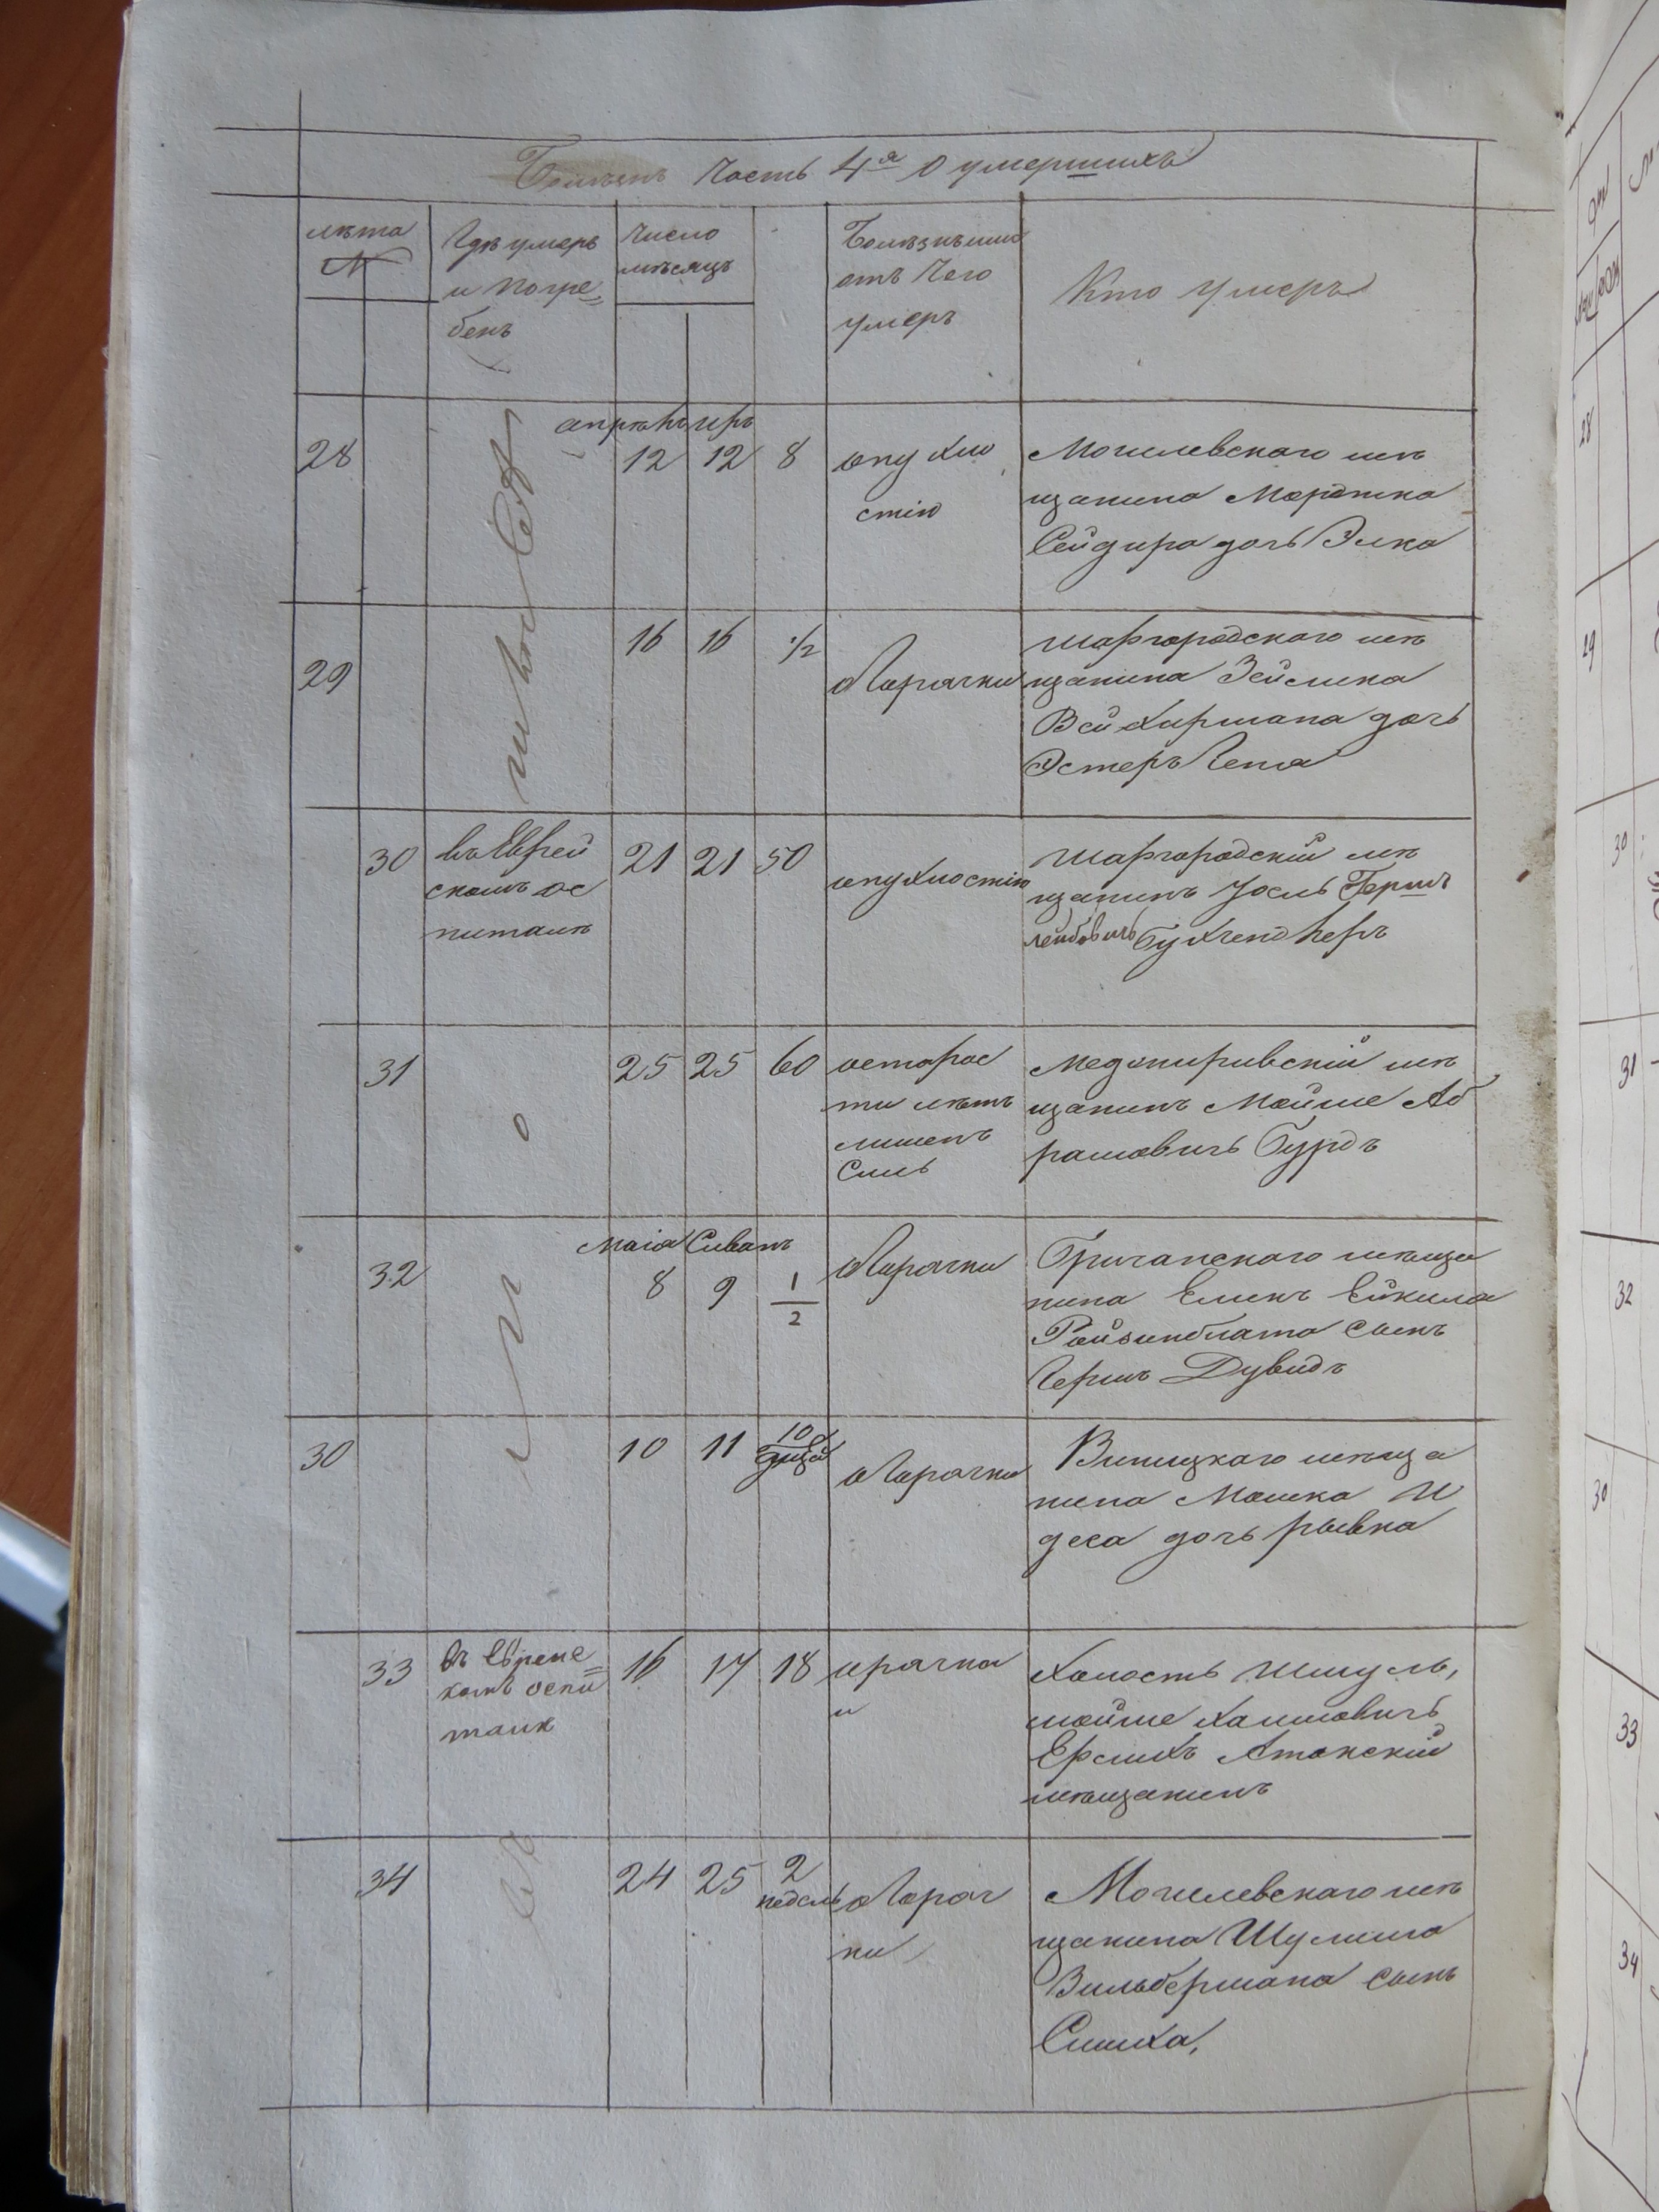 Часть 4я о умершихъ
лѣта
№
Гдѣ умеръ
и погре=
бенъ
Число
мѣсяцъ
Болѣзнь или
отъ чего
умеръ
Кто умеръ
28
12 12 8
опухло
стію
Могилевскаго мѣ
щанина Мордка
Сейдира дочь Элка
29
16 16 1/2
Горячки
Шаргородскаго мѣ
щанина Зейлика
Вейхирмана дочь
Эстеръ Геня
30
въ Еврей
скомъ ос
питалѣ
21 21 50
опухлостію
Шаргородскій мѣ
щанинъ Іосль Гершъ
Лейбовичъ
31
25 25 60
острос
ти лѣтъ
лишенъ
Силъ
мѣ
щанинъ Мойше Аб
рамовичъ Бурдъ
32
Маія Сиванъ
8 9 1/2
Горячки
Бричанскаго мѣща
нина Еликъ Ейкила
Ройзинблата сынъ
Гершъ Дувидъ
30
10 11 10
Горячки
Виницкаго мѣща
нина Мошка И
деса дочь рывка
33
въ Еврейс=
комъ оспи
талѣ
16 17 18
Холость Шмуль,
мойше Хаимовичъ
Ерлихъ Атакскій
мѣщанинъ
34
24 25 2
недель
Горяч
ки
Могилевскаго мѣ
щанина Шулима
Зильбермана сынъ
Симха,
28
29
30
31
32
30
33
34